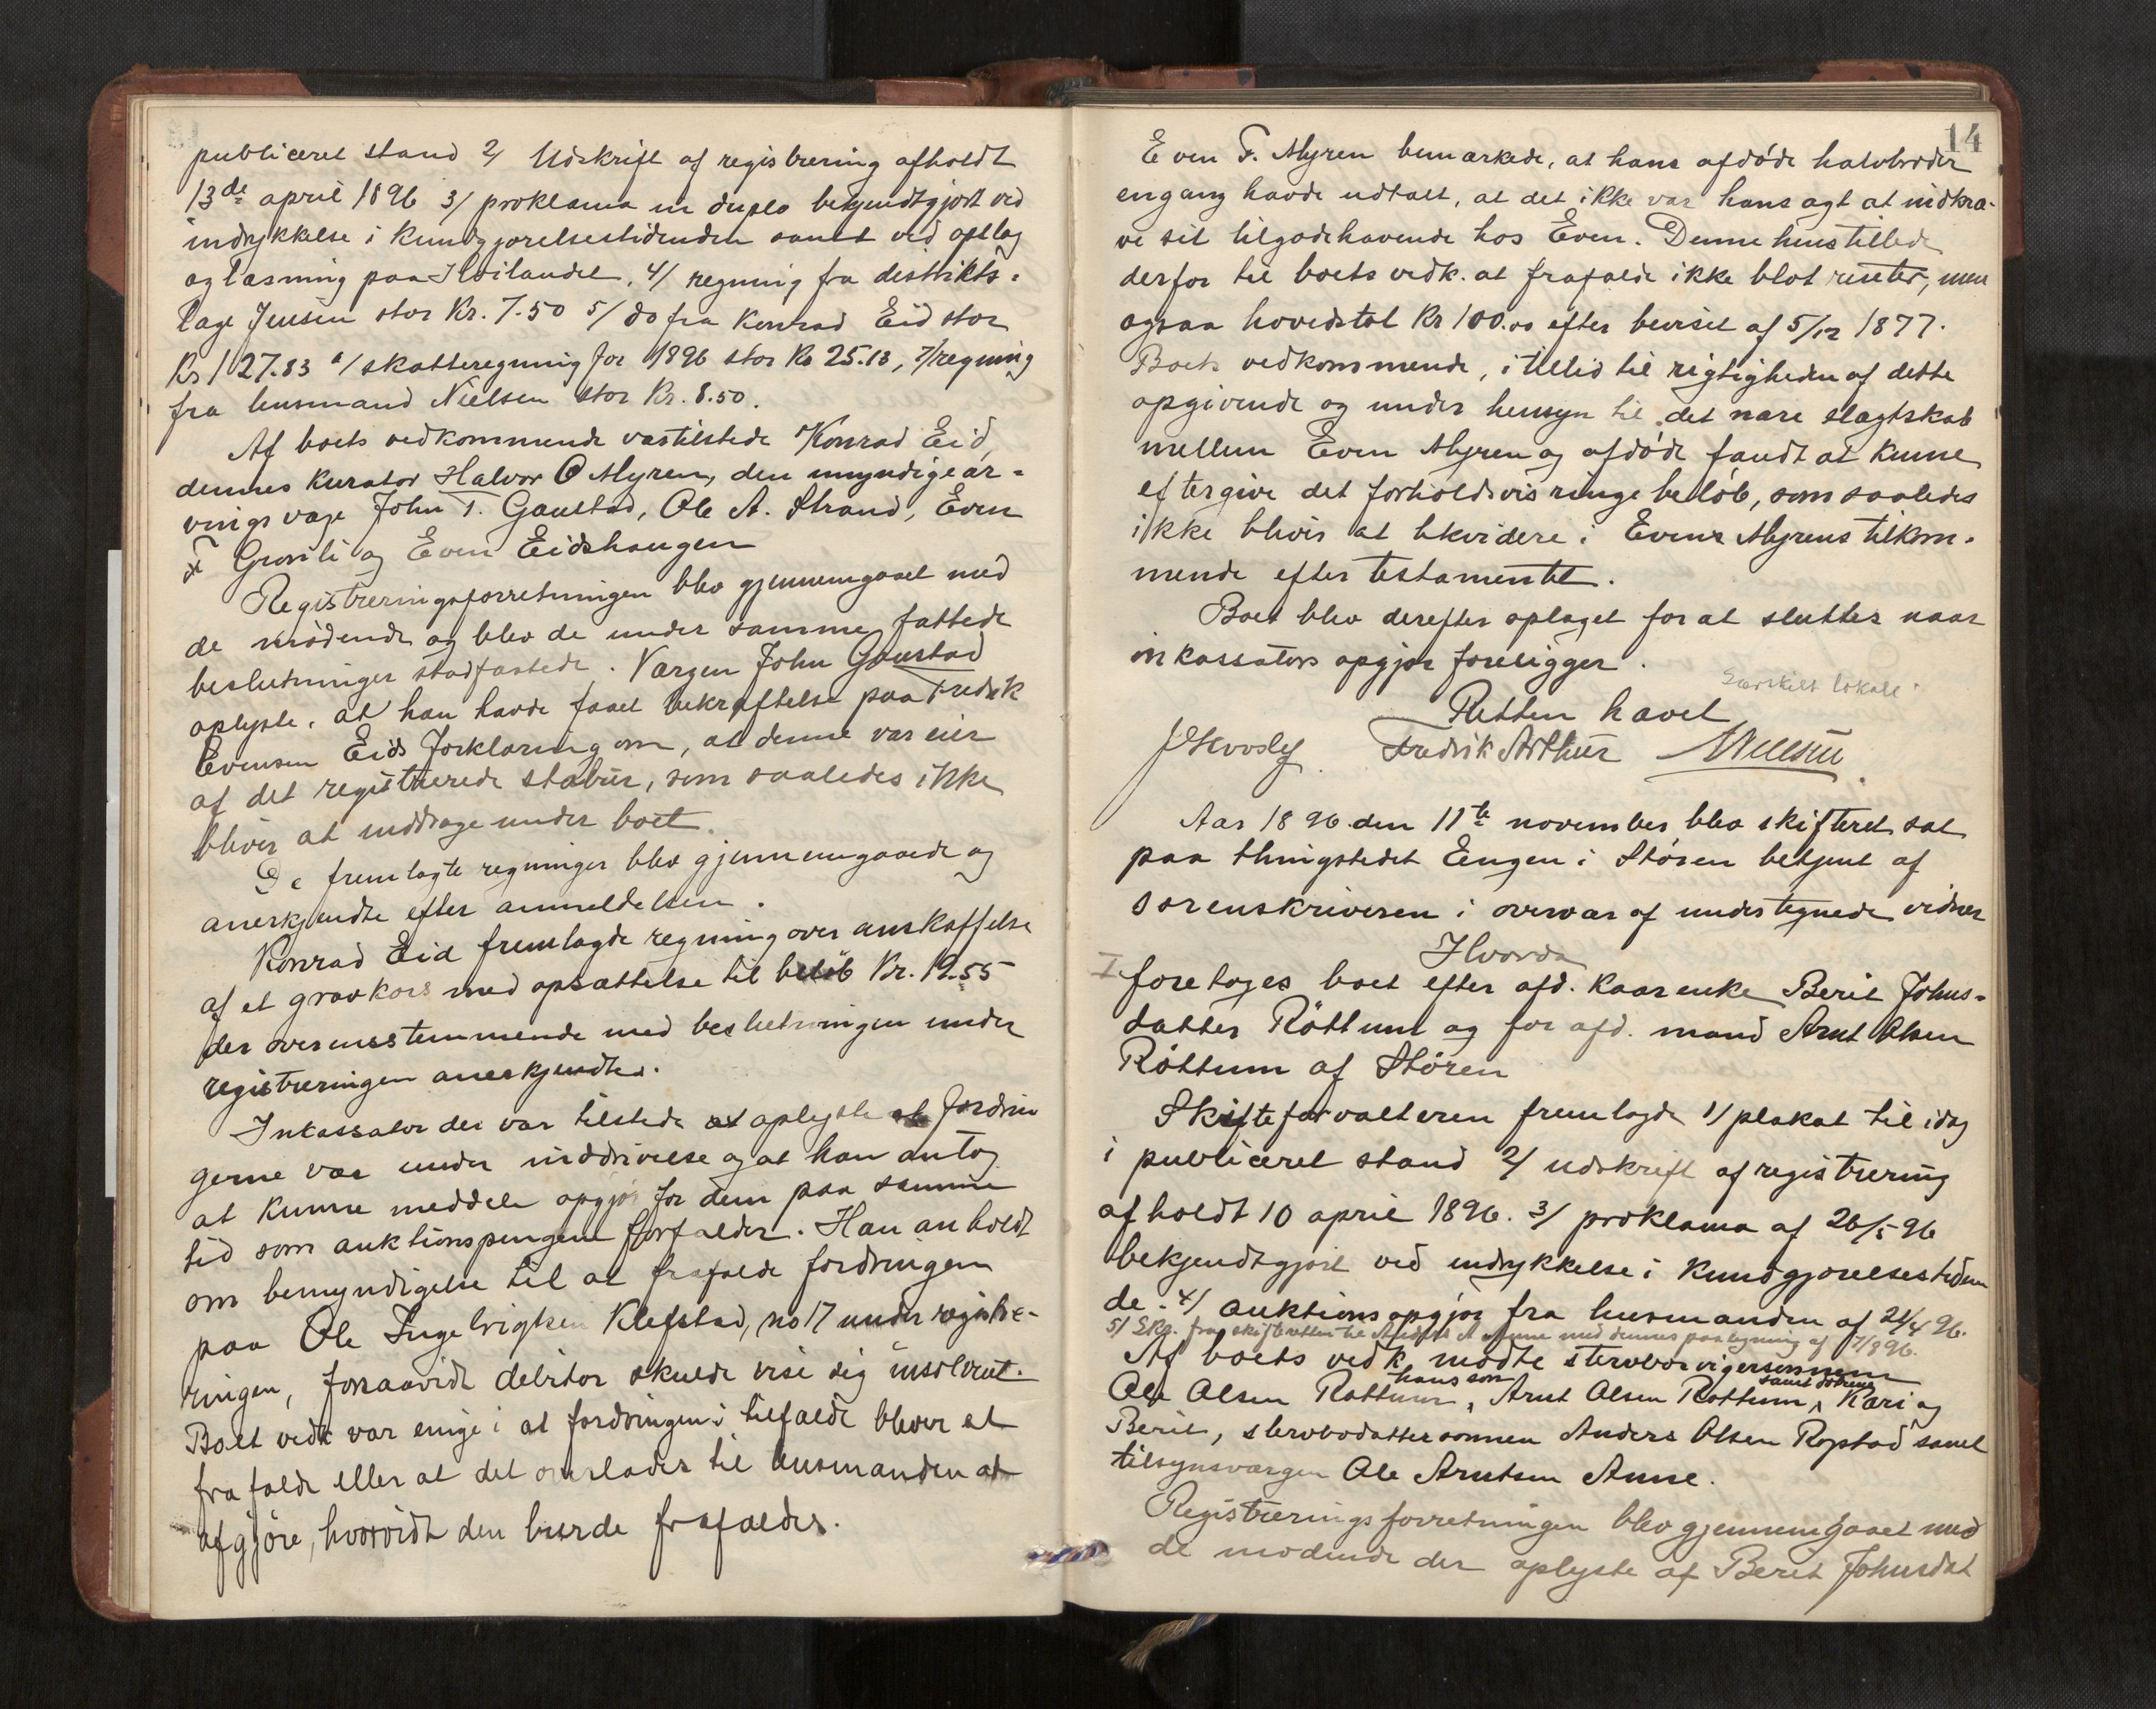 publiceret stand 2/ Udskrift af registrering afholdt
13de april 1896 3/ proklama in duplo bekjendtgjort ved
indrykkelse i kundgjørelsestidenden samt ved opslag
og læsning paa Høilandet, 4/ regning fra distrikts-
læge Jensen stor Kr. 7.50 5/ do fra Konrad Eid stor
Kr 127.83 6/ skatteregning for 1896 stor Kr 25.18, 7/ regning
fra lensmand Nielsen stor Kr. 8.50.
Af boets vedkommende var tilstede Konrad Eid,
dennes kurator Halvor O Myren, den umyndige ar-
vings værge John T. Gaustad, Ole A. Strand, Even
F Gronli og Even Eidshaugen
Registreringsforretningen blev gjennemgaaet med
de mødende og blev de under samme fattede
beslutninger stadfæstede. Værgen John Gaustad
oplyste, at han havde faaet bekræftelse paa Fredrik
Evensen Eids forklaring om, at denne var eier
af det registrerede stabur, som saaledes ikke
bliver at inddrage under boet.
De fremlagte regninger blev gjennemgaaede og
anerkjendte efter anmeldelsen.
Konrad Eid fremlagde regning over anskaffelse
af et gravkors med opsættelse til beløb Kr. 19.55
der overensstemmende med beslutningen under
registreringen anerkjendtes.
Inkassator der var tilstede oplyste at fordrin
gerne var under inddrivelse og at han antog
at kunne meddele opgjør for dem paa samme
tid som auktionspengene forfalder. Han anholdt
om bemyndigelse til at frafalde fordringen
paa Ole Ingebrigtsen Klefstad, no 17 under registre-
ringen, forsaavidt debitor skulde vise sig insolvent.
Boet vedk var enige i at fordringen i tilfælde bliver at
frafalde eller at det overlades til lensmanden at
afgjøre, hvorvidt den burde frafaldes.
14
Even F. Myren bemærkede, at hans afdøde halvbroder
engang havde udtalt, at det ikke var hans agt at indkræ-
ve sit tilgodehavende hos Even. Denne henstillede
derfor til boets vedk. at frafalde ikke blot renter, men
ogsaa hovedstol Kr 100.00 efter beviset af 5/12 1877.
Boets vedkommende, i tillid til rigtigheden af dette
opgivende og under hensyn til det nære slægtskab
mellem Even Myren og afdøde fandt at kunne
eftergive det forholdsvis ringe beløb, som saaledes
ikke bliver at likvidere i Evens Myrens tilkom-
mende efter testamentet.
Boet blev derefter optaget for at sluttes naar
inkassators opgjør foreligger.
Særskilt lokale.
Retten hævet
Fredrik Arthur Nielsen
Aar 1896 den 11te november blev skifteret sat
paa thingstedet Engen i Støren betjent af
sorenskriveren i overvær af undertegnede vidner
Hvorda
I foretoges boet efter afd. kaarenke Berit Johns-
datter Röttum og før afd. mand Arnt Olsen
Röttum af Støren
Skifteforvalteren fremlagde 1/ plakat til idag
i publiceret stand 2/ udskrift af registrering
afholdt 10 april 1896. 3/ proklama af 26/5 96
bekjendtgjort ved indrykkelse i kundgjørelsestiden
de. 4/ auktionsopgjør fra lensmanden af 21/4 96.
5/ Skr. fra skifteretten til med dennes paategning af 7/8 96.
Af boets vedk. mødte
Ole Olsen Rottum, hans søn Arnt Olsen Rottum, samt døtrene Kari og
Berit, stervbodattersønnen Anders Olsen Ropstad samt
tilsynsværgen Ole Arntsen Anne.
Registreringsforretningen blev gjennemgaaet med
de mødende der oplyste af Berit Johnsdat